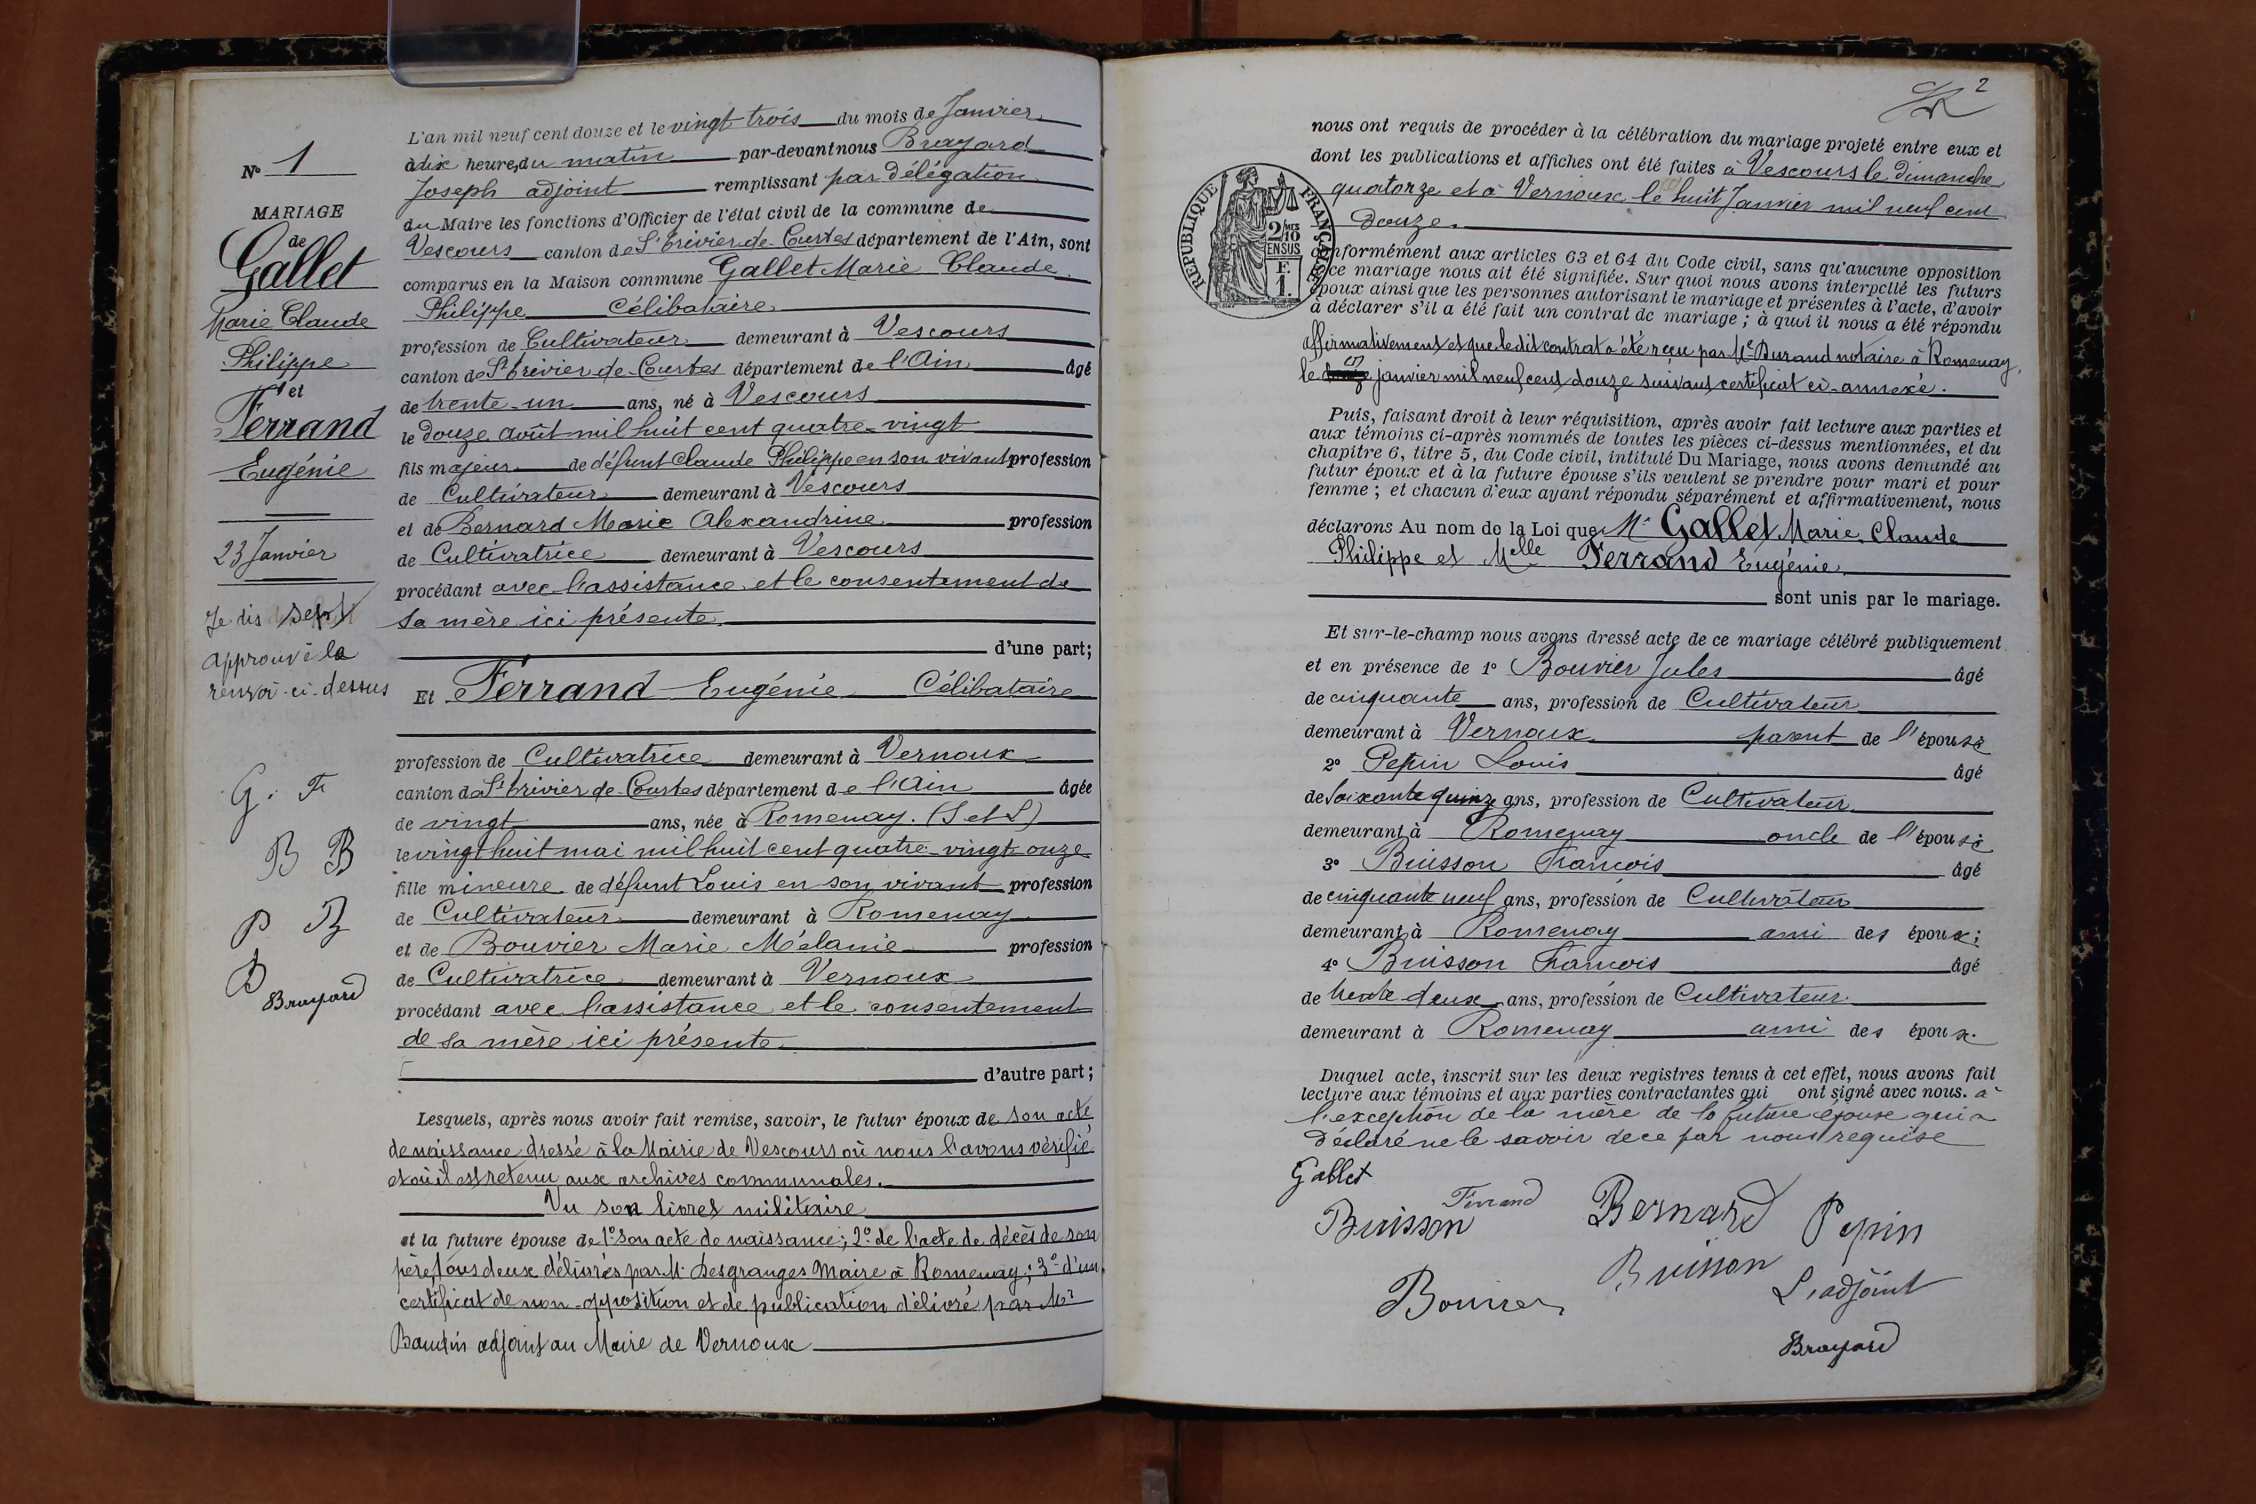 N° 1
MARIAGE
de
Gallet
Marie Claude
Philippe
et
Ferrand
Eugénie
23 Janvier
Je dis sept
approuvé le
renvoi ci-dessus
G. F
B B
P B
B
Brayard
L'an mil neuf cent douze et le vingt trois du mois de Janvier
à dix heures du matin par-devant nous Brayard
Joseph adjoint remplissant par délégation
du Maire les fonctions d'Officier de l'état civil de la commune de
Vescours canton de St Trivier-de-Courtes département de l'Ain, sont
comparus en la Maison commune Gallet Marie Claude
Philippe Célibataire
profession de Cultivateur demeurant à Vescours
canton de St Trivier-de-Courtes département de l'Ain âgé
de trente-un ans, né à Vescours
le douze août mil huit cent quatre-vingt
fils majeur de défunt Claude Philippe en son vivant profession
de Cultivateur demeurant à Vescours
et de Bernard Marie Alexandrine profession
de Cultivatrice demeurant à Vescours
procédant avec l'assistance et le consentement de
sa mère ici présente
d'une part;
Et Ferrand Eugénie Célibataire
profession de Cultivatrice demeurant à Vernoux
canton de St Trivier-de-Courtes département de l'Ain âgée
de vingt ans, née à Romenay. (S et L)
le vingt huit mai mil huit cent quatre-vingt-onze
fille mineure de défunt Louis en son vivant profession
de Cultivateur demeurant à Romenay
et de Bouvier Marie Mélanie profession
de Cultivatrice demeurant à Vernoux
procédant avec l'assistance et le consentement
de sa mère ici présente
d'autre part;
Lesquels, après nous avoir fait remise, savoir, le futur époux de son acte
de naissance dressé à la Mairie de Vescours où nous l'avons vérifié
et où il est retenu aux archives communales.
Vu son livret militaire
et la future épouse de 1° son acte de naissance; 2° de l'acte de décès de son
père, tous deux délivrés par M. Desgranges Maire à Romenay; 3° d'un
certificat de non-opposition et de publication délivré par Mr
Baudin adjoint au Maire de Vernoux
2
RÉPUBLIQUE FRANÇAISE
2/10
EN SUS
F.
1.
nous ont requis de procéder à la célébration du mariage projeté entre eux et
dont les publications et affiches ont été faites à Vescours le dimanche
quatorze et à Vernoux le huit Janvier mil neuf cent
douze.
conformément aux articles 63 et 64 du Code civil, sans qu'aucune opposition
à ce mariage nous ait été signifiée. Sur quoi nous avons interpellé les futurs
époux ainsi que les personnes autorisant le mariage et présentes à l'acte, d'avoir
à déclarer s'il a été fait un contrat de mariage; à quoi il nous a été répondu
affirmativement et que ledit contrat a été reçu par Me Durand notaire à Romenay
le janvier mil neuf cent douze suivant certificat ci-annexé.
Puis, faisant droit à leur réquisition, après avoir fait lecture aux parties et
aux témoins ci-après nommés de toutes les pièces ci-dessus mentionnées, et du
chapitre 6, titre 5, du Code civil, intitulé Du Mariage, nous avons demandé au
futur époux et à la future épouse s'ils veulent se prendre pour mari et pour
femme; et chacun d'eux ayant répondu séparément et affirmativement, nous
déclarons Au nom de la Loi que Mr Gallet Marie Claude
Philippe et Melle Ferrand Eugénie
sont unis par le mariage.
Et sur-le-champ nous avons dressé acte de ce mariage célébré publiquement
et en présence de 1° Bouvier Jules âgé
de cinquante ans, profession de Cultivateur
demeurant à Vernoux parent de l'épouse
2° Pepin Louis âgé
de soixante quinze ans, profession de Cultivateur
demeurant à Romenay oncle de l'épouse
3° Buisson Francois âgé
de cinquante neuf ans, profession de Cultivateur
demeurant à Romenay ami des époux;
4° Buisson Francois âgé
de trente deux ans, profession de Cultivateur
demeurant à Romenay ami des époux.
Duquel acte, inscrit sur les deux registres tenus à cet effet, nous avons fait
lecture aux témoins et aux parties contractantes qui ont signé avec nous. à
l'exception de la mère de la future épouse qui a
déclaré ne le savoir de ce par nous requise
Gallet
Ferrand
Buisson
Bernard
Pepin
Buisson
Bouvier
L'adjoint
Brayard